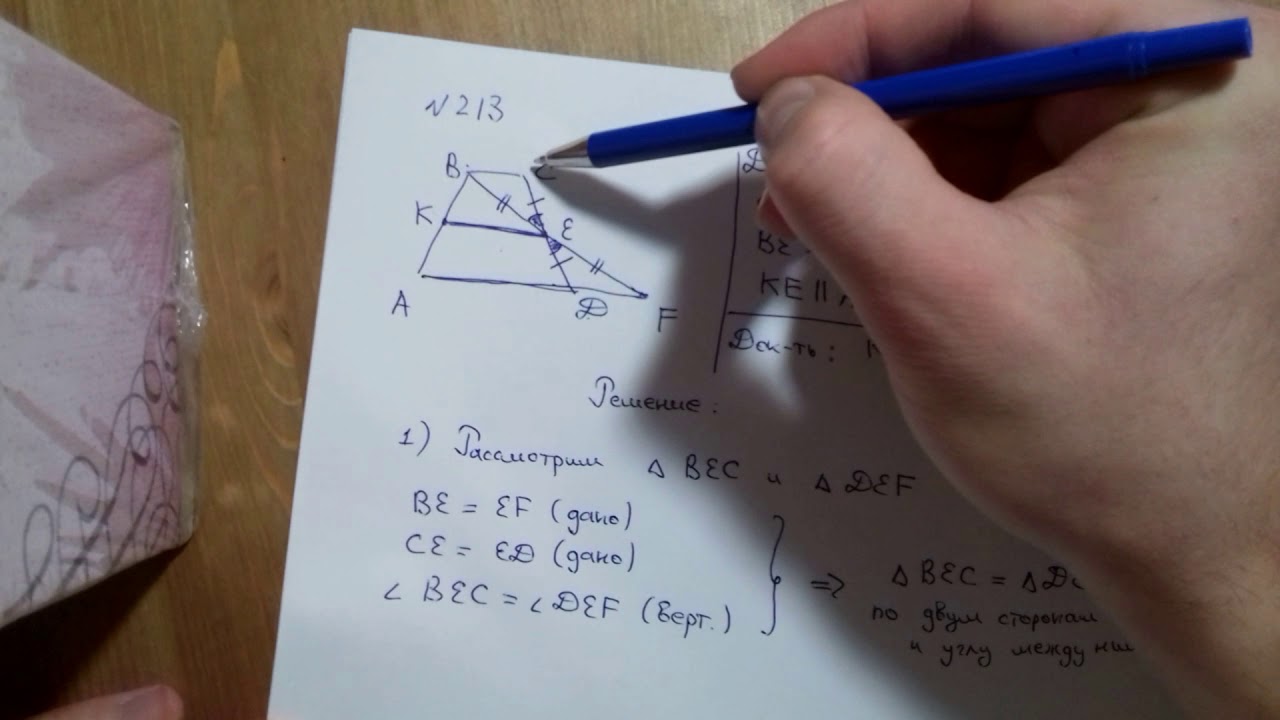 N213
B C
K E
A D F
BE
KE ||
Док-ть:
Решение:
1) Рассмотрим Δ BEC и Δ DEF
BE = EF (дано)
CE = ED (дано)
∠ BEC = ∠ DEF (верт.)
=> Δ BEC = Δ
по двум сторонам
и углу между